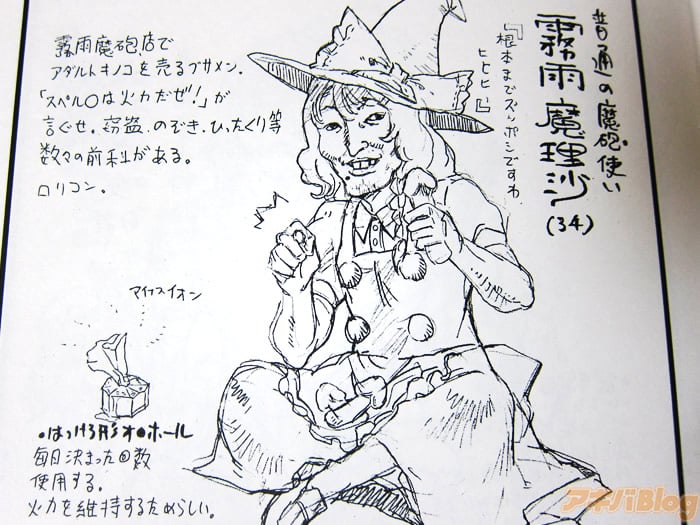 普通の魔砲使い
霧雨魔理沙
(34)
『根本までズッポシですわ、
ヒヒヒ』
霧雨魔砲店で
アダルトキノコを売るブサメン.
「スペル〇は火力だぜ!」が
言ぐせ.窃盗.のぞき.ひったくり等
数々の前科がある。
ロリコン.
マイナスイオン
•はっけろ形オ●ホール
毎日決まった回数
使用する.
火力を維持するためらしい.
アキバBlog